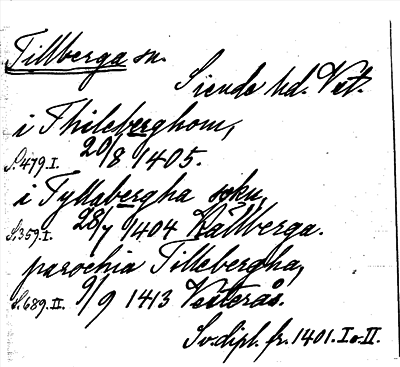 Tillberga sn.
Siende hd. Vst.
i Thileberghom,
S. 479. I. 20/8 1405.
i Tyllabergha sokn,
S. 359. I. 28/7 1404 Källberga.
parochia Tillebergha,
S. 689. II. 9/9 1413 Vesterås.
Sv. dipl. fr. 1401. I o. II.